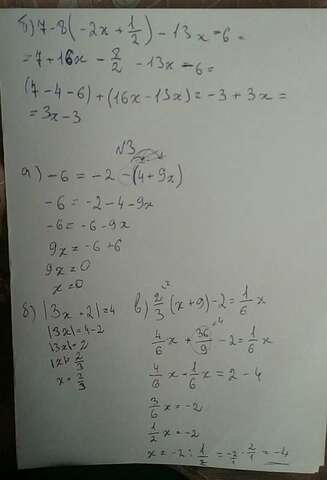 б) 7-8(-2x+1/2)-13x-6=
=7+16x-8/2-13x-6=
(7-4-6)+(16x-13x)=-3+3x=
=3x-3
№3
а) -6=-2-(4+9x)
-6=-2-4-9x
-6=-6-9x
9x=-6+6
9x=0
x=0
б) |3x+2|=4
|3x|=4-2
|3x|=2
|x|=2/3
x=2/3
в) 2/3(x+9)-2=1/6x
4/6x+36/9-2=1/6x
4/6x-1/6x=2-4
3/6x=-2
1/2x=-2
x=-2:1/2=-2/1·2/1=-4